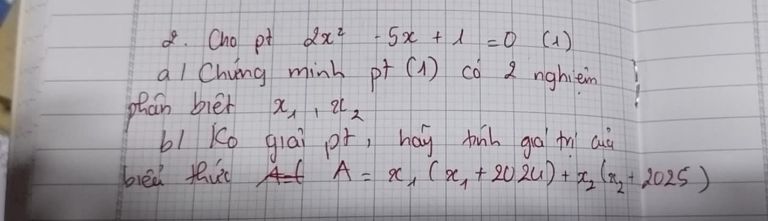 2. Cho pt 2x² - 5x + 1 = 0 (1)
a/ Chứng minh pt (1) có 2 nghiệm
phân biệt x₁, x₂
b/ Ko giải pt, hãy tính giá trị của
biểu thức A = x₁(x₁ + 2024) + x₂(x₂ + 2025)